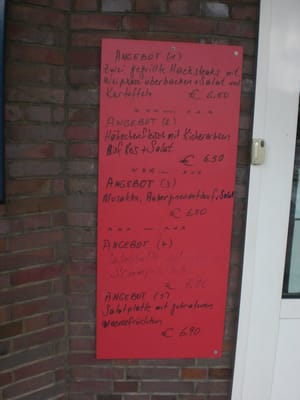 ANGEBOT (1)
Zwei gegrillte Hacksteaks mit
überbacken + Salat und
Kartoffeln € 6,50
ANGEBOT (2)
Hähnchenfleisch mit Kichererbsen
Auf Reis + Salat
€ 6.50
ANGEBOT (3)
Musakka, Auberginenauflauf, Salat
€ 6.50
ANGEBOT (4)
Salatplatte mit
€ 6,90
ANGEBOT (5)
Salatplatte mit gebratenen
Meeresfrüchten
€ 6,90